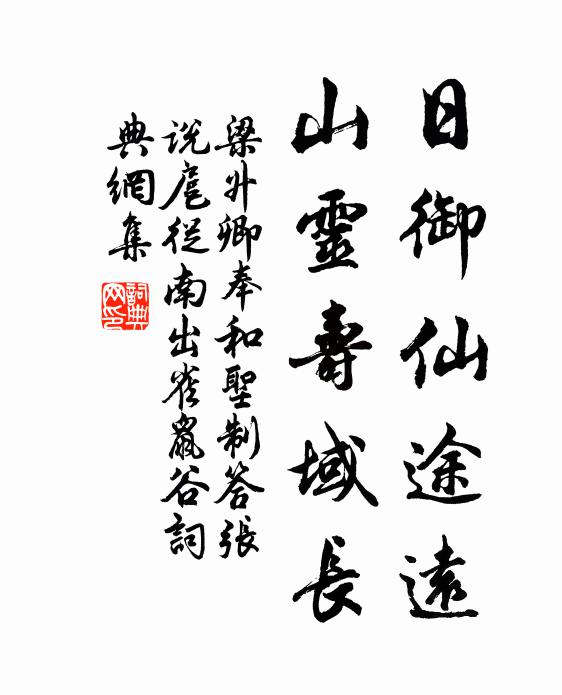 日御仙途遠
山靈壽域長
梁升卿奉和聖制答張
說扈從南出雀鼠谷詞
典網集
詞典网印